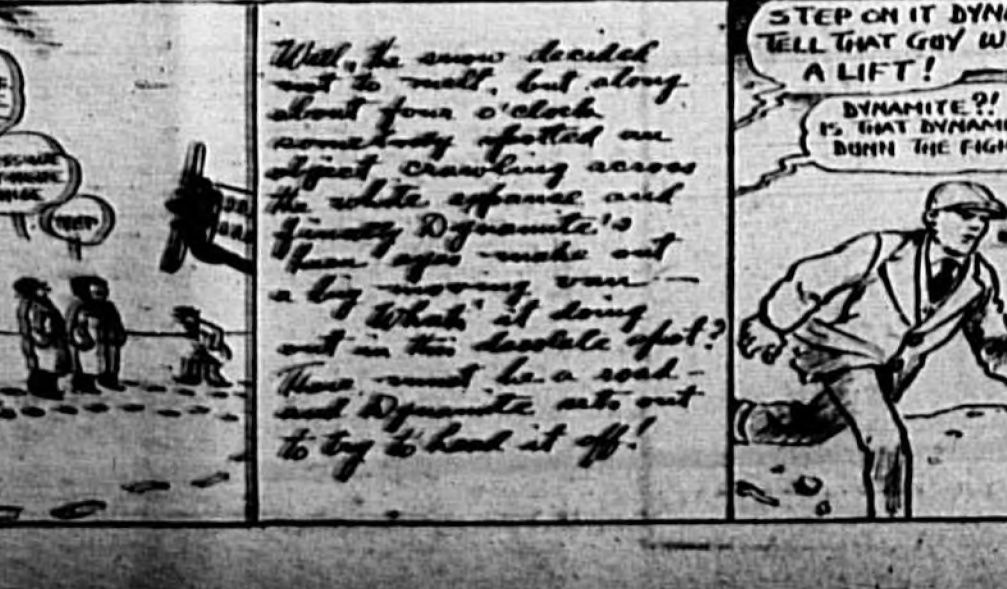 TEXT
Well, the snow decided
not to melt, but along
about four o'clock
somebody spotted an
object crawling across
the white expanse and
Jimmy Dynamite's
keen eyes make out
a big moving van —
What's it doing
out in this desolate spot?
There must be a road —
and Dynamite sets out
to try to head it off!
STEP ON IT
TELL THAT GUY
A LIFT!
DYNAMITE?!
IS THAT
DUNN THE